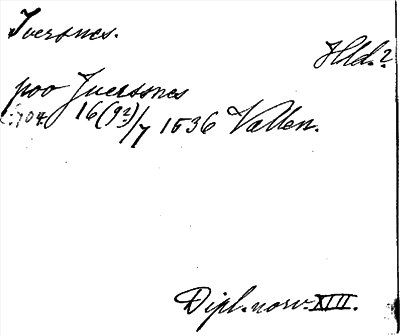 Iversnes.
Hld.?
poo Juerssnes
704 16(9?)/7 1536 Vallen.
Dipl. norv. XIII.